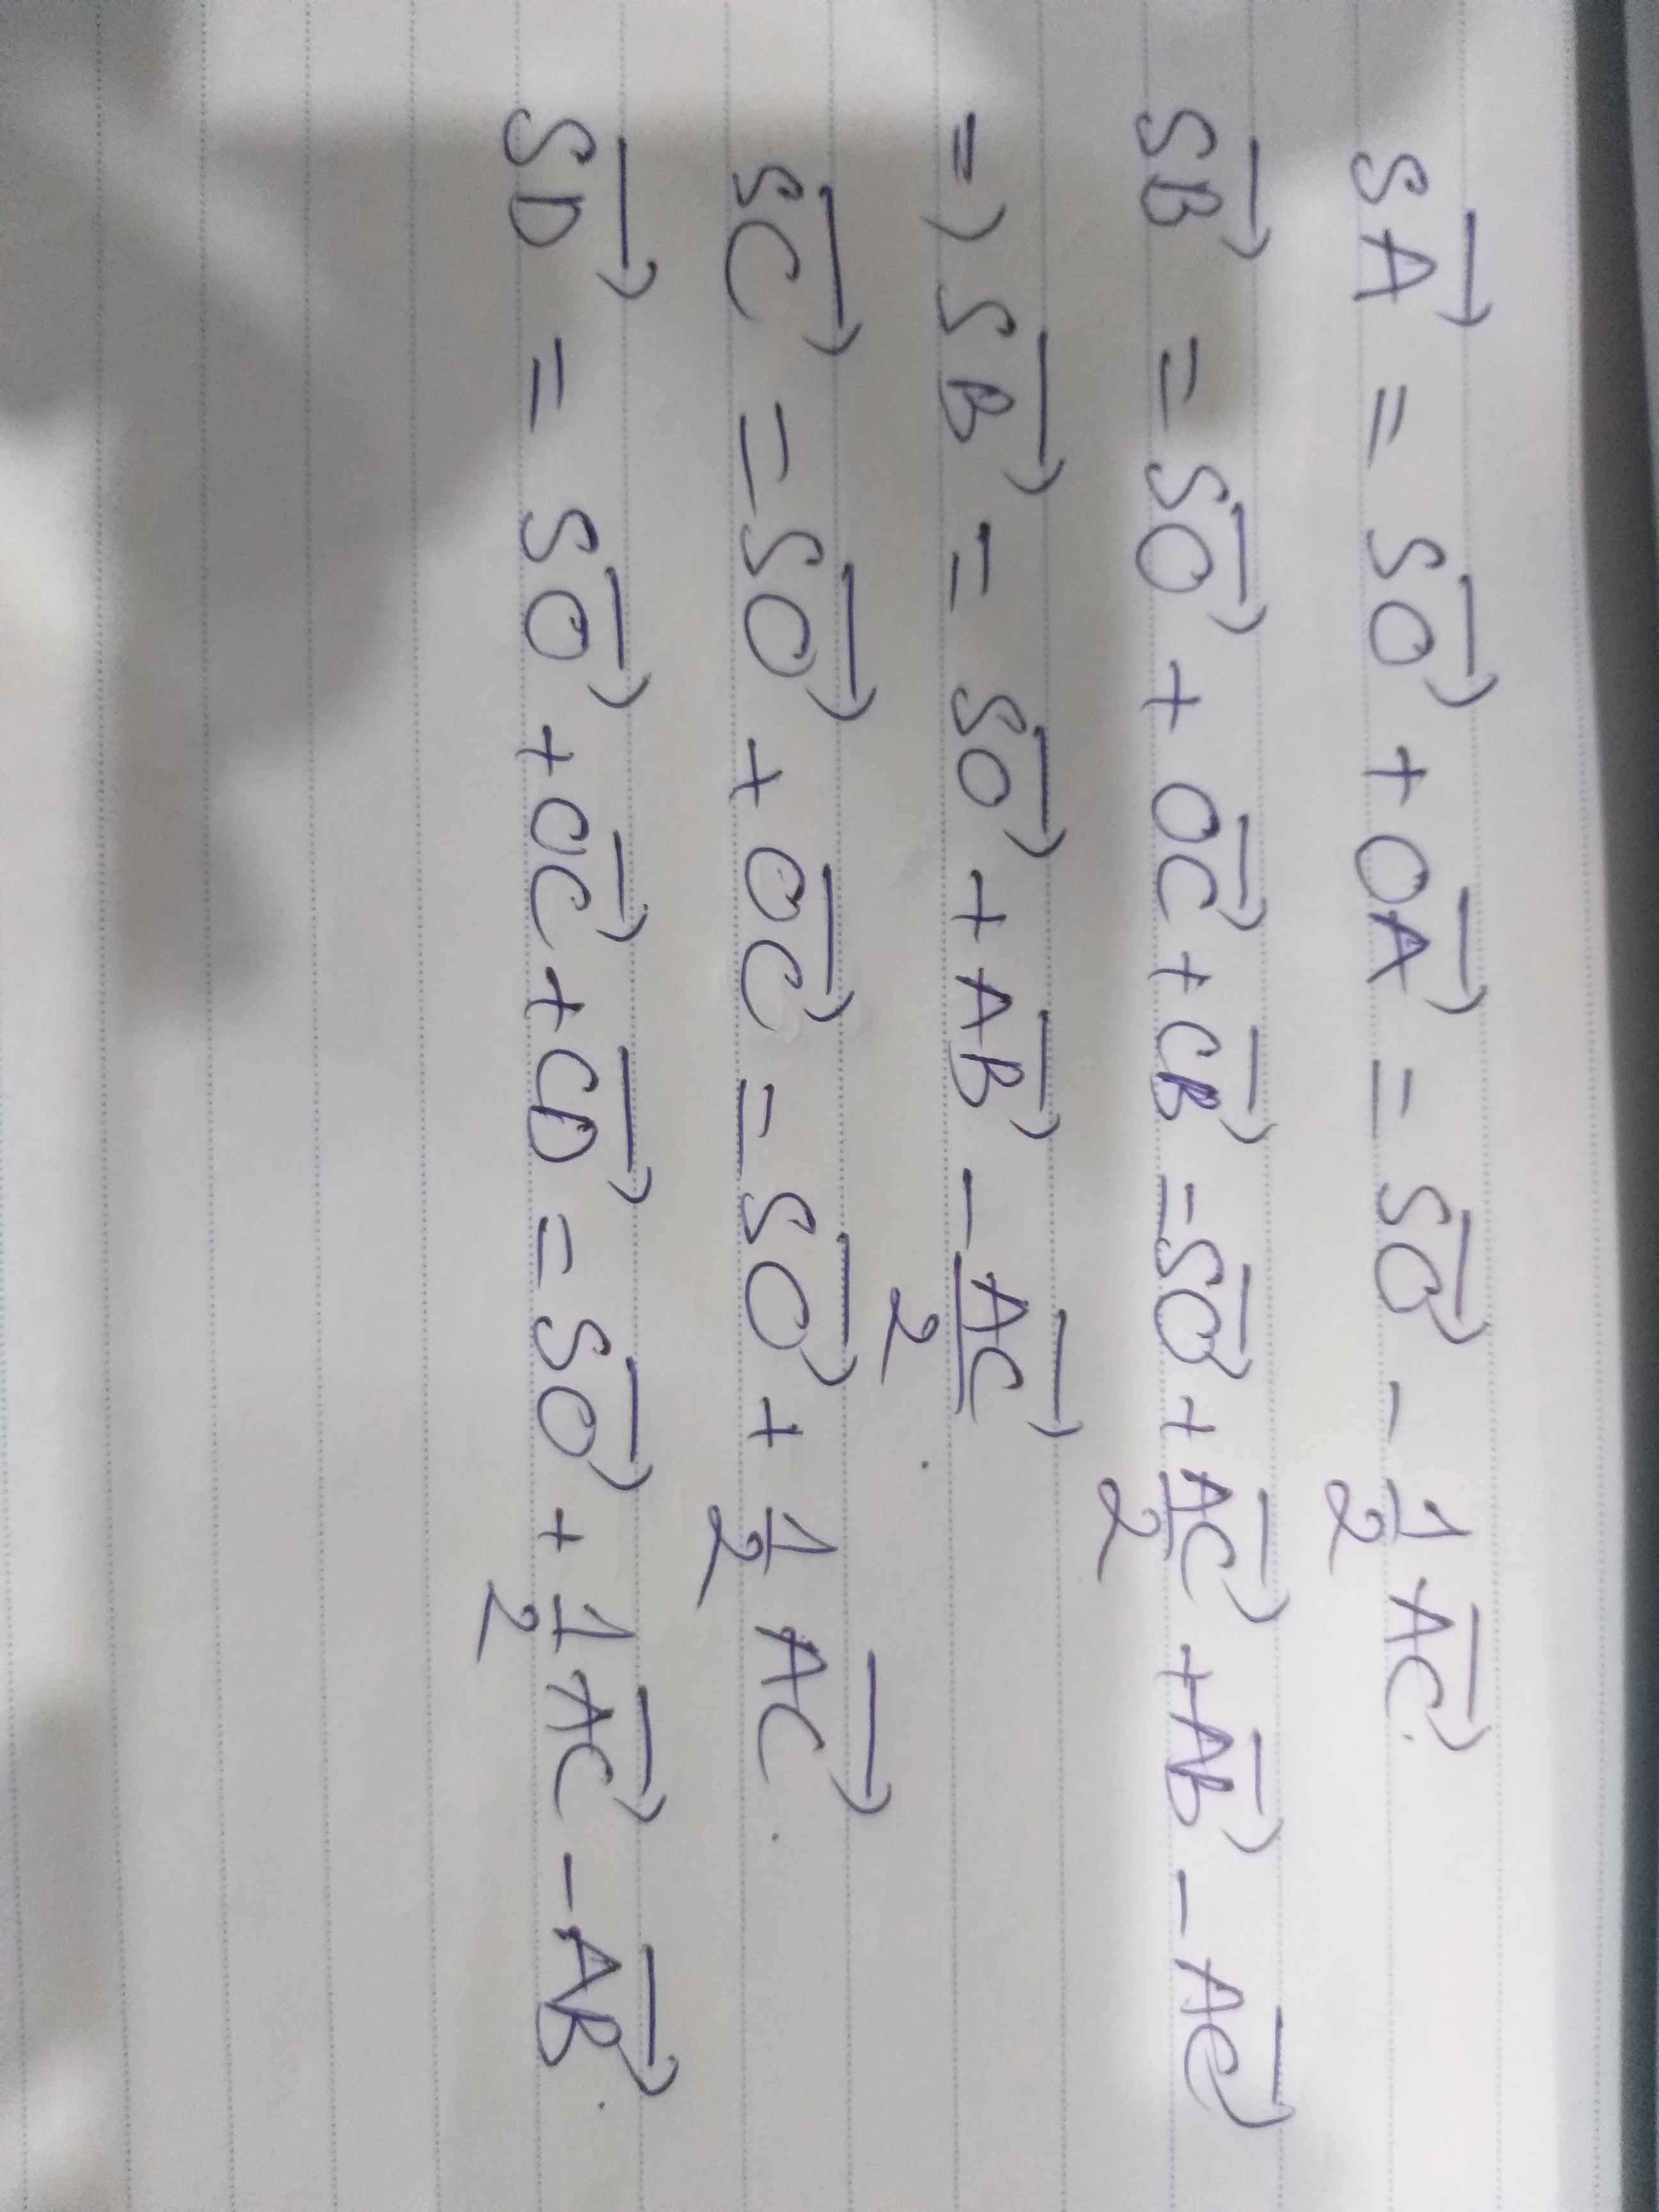 $\overrightarrow{SA} = \overrightarrow{SO} + \overrightarrow{OA} = \overrightarrow{SO} - \frac{1}{2}\overrightarrow{AC}.$
$\overrightarrow{SB} = \overrightarrow{SO} + \overrightarrow{OC} + \overrightarrow{CB} = \overrightarrow{SO} + \frac{\overrightarrow{AC}}{2} + \overrightarrow{AB} - \overrightarrow{AC}$
$\Rightarrow \overrightarrow{SB} = \overrightarrow{SO} + \overrightarrow{AB} - \frac{\overrightarrow{AC}}{2}.$
$\overrightarrow{SC} = \overrightarrow{SO} + \overrightarrow{OC} = \overrightarrow{SO} + \frac{1}{2}\overrightarrow{AC}.$
$\overrightarrow{SD} = \overrightarrow{SO} + \overrightarrow{OC} + \overrightarrow{CD} = \overrightarrow{SO} + \frac{1}{2}\overrightarrow{AC} - \overrightarrow{AB}.$